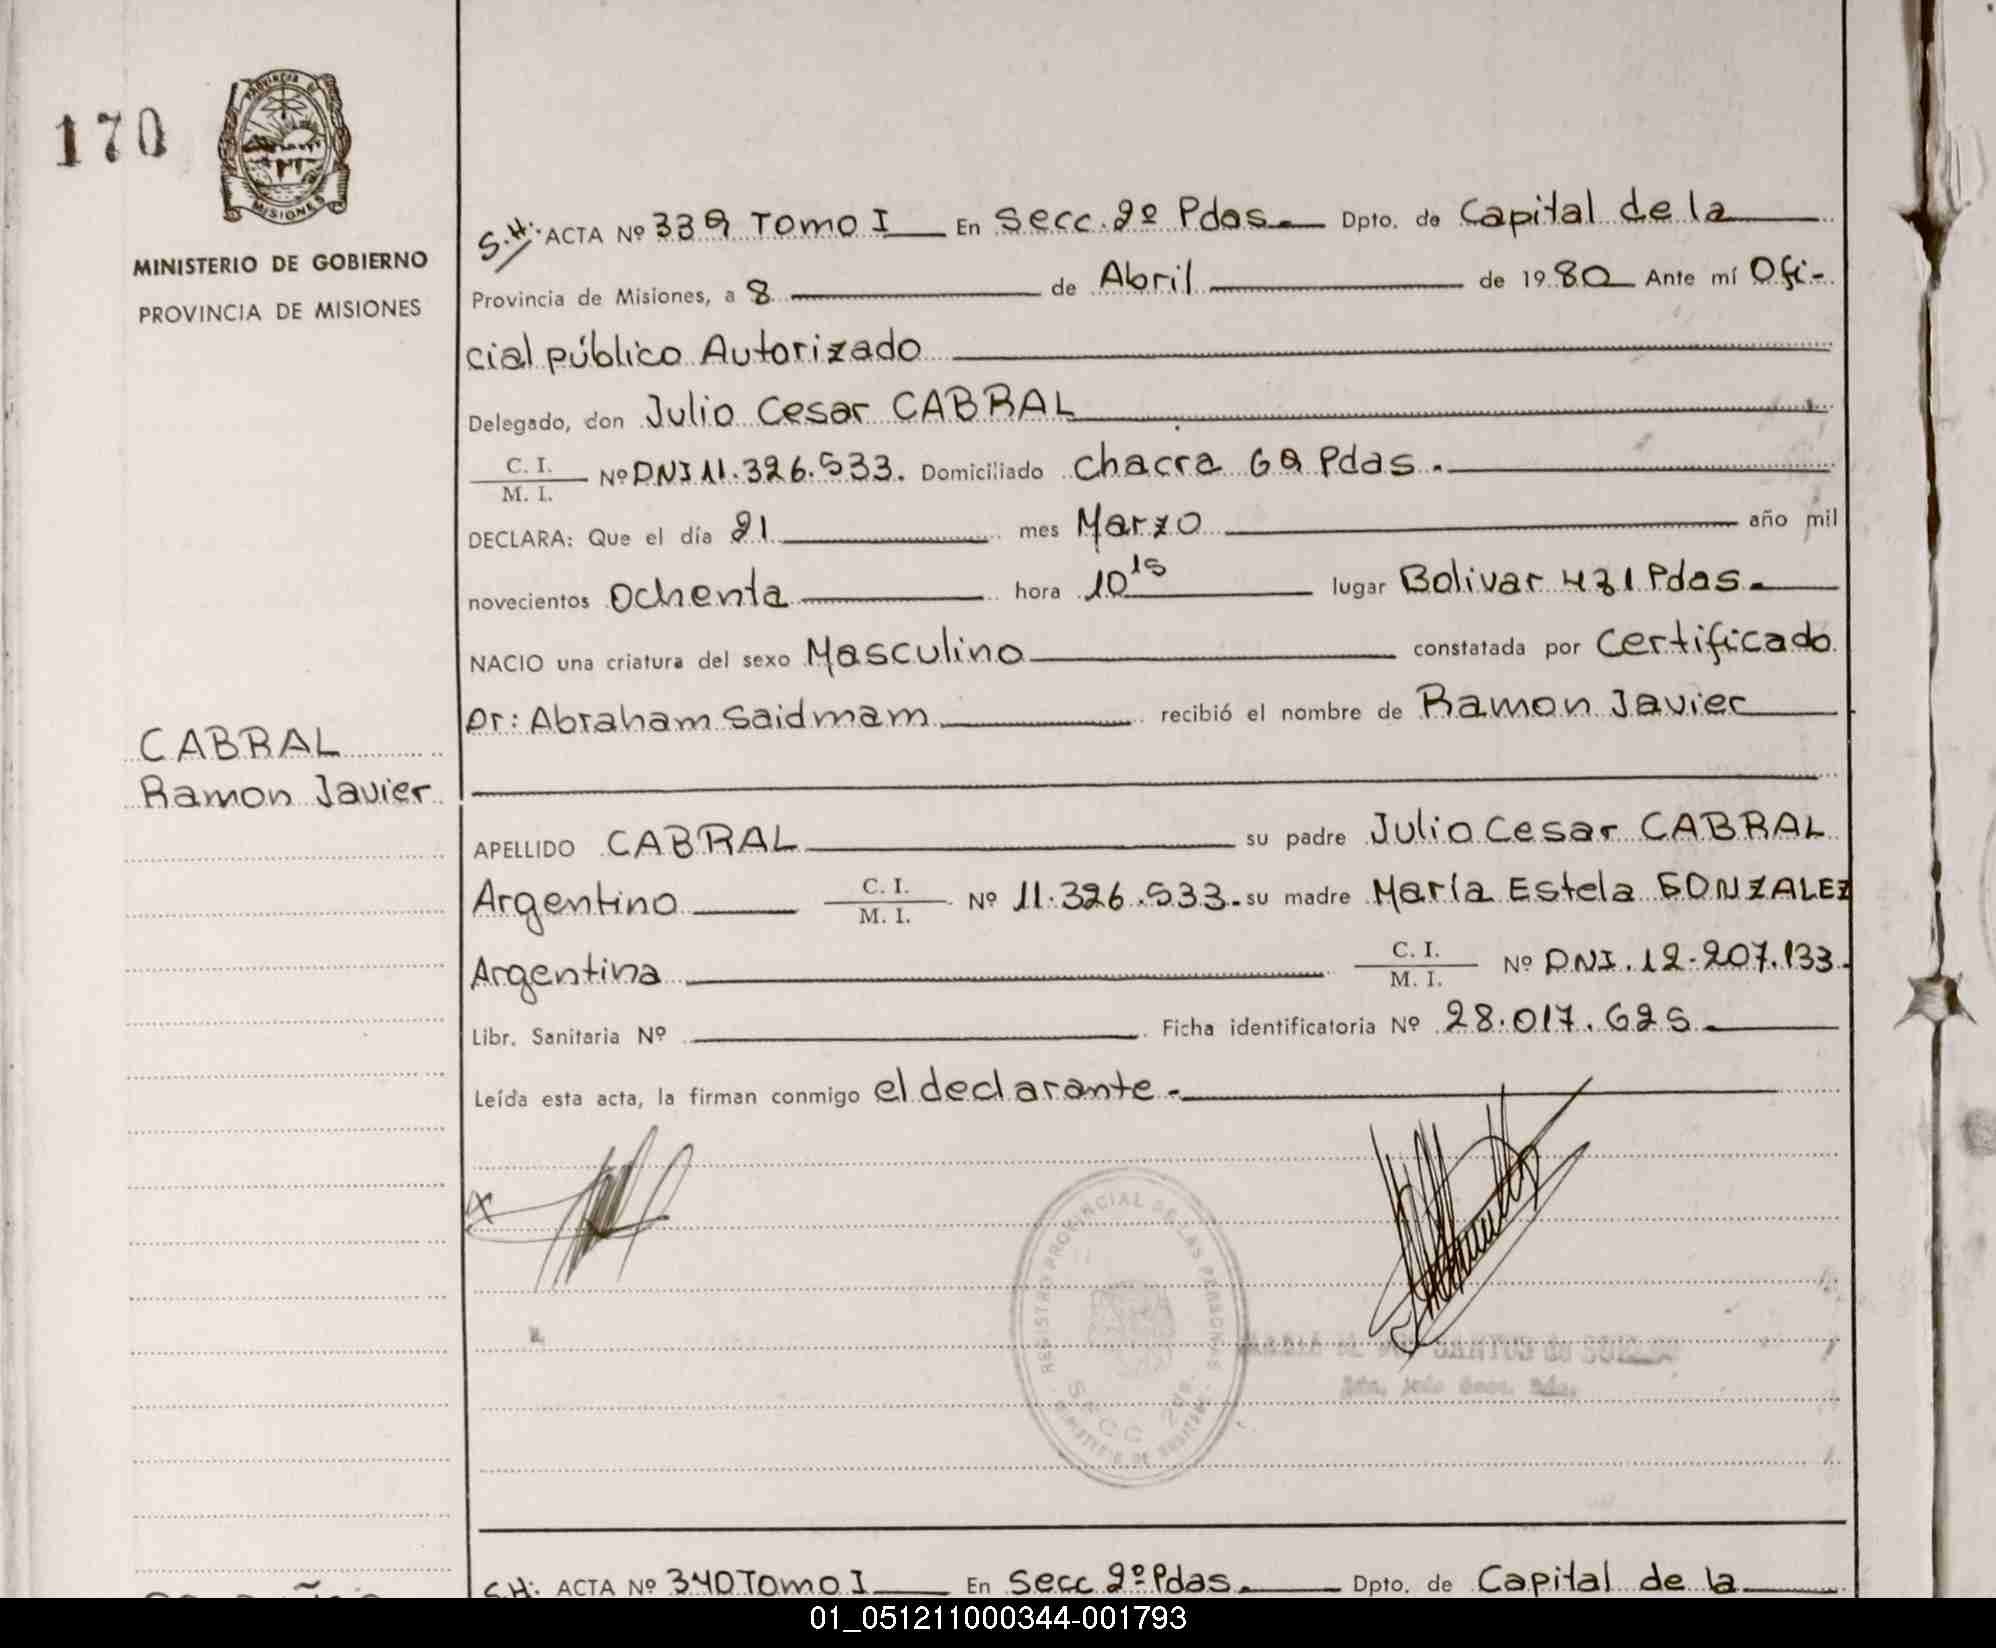 170
PROVINCIA DE
MISIONES
MINISTERIO DE GOBIERNO
PROVINCIA DE MISIONES
S.H: ACTA Nº 339 Tomo I En Secc. 2º Pdas. Dpto. de Capital de la
Provincia de Misiones, a 8 de Abril de 1980 Ante mí Ofi-
cial público Autorizado
Delegado, don Julio Cesar CABRAL
C. I.
M. I. Nº DNI 11.326.533. Domiciliado Chacra 69 Pdas.
DECLARA: Que el día 21 mes Marzo año mil
novecientos Ochenta hora 10 15 lugar Bolivar 431 Pdas.
NACIO una criatura del sexo Masculino constatada por Certificado
Dr: Abraham Saidmam recibió el nombre de Ramon Javier
CABRAL
Ramon Javier
APELLIDO CABRAL su padre Julio Cesar CABRAL
Argentino C. I. M. I. Nº 11.326.533. su madre María Estela GONZALEZ
Argentina C. I. M. I. Nº DNI. 12.207.133.
Libr. Sanitaria Nº Ficha identificatoria Nº 28.017.625
Leída esta acta, la firman conmigo el declarante.
REGISTRO PROVINCIAL DE LAS PERSONAS
SECC 2da.
S.H: ACTA Nº 340 Tomo I En Secc 2º Pdas. Dpto. de Capital de la
01_051211000344-001793